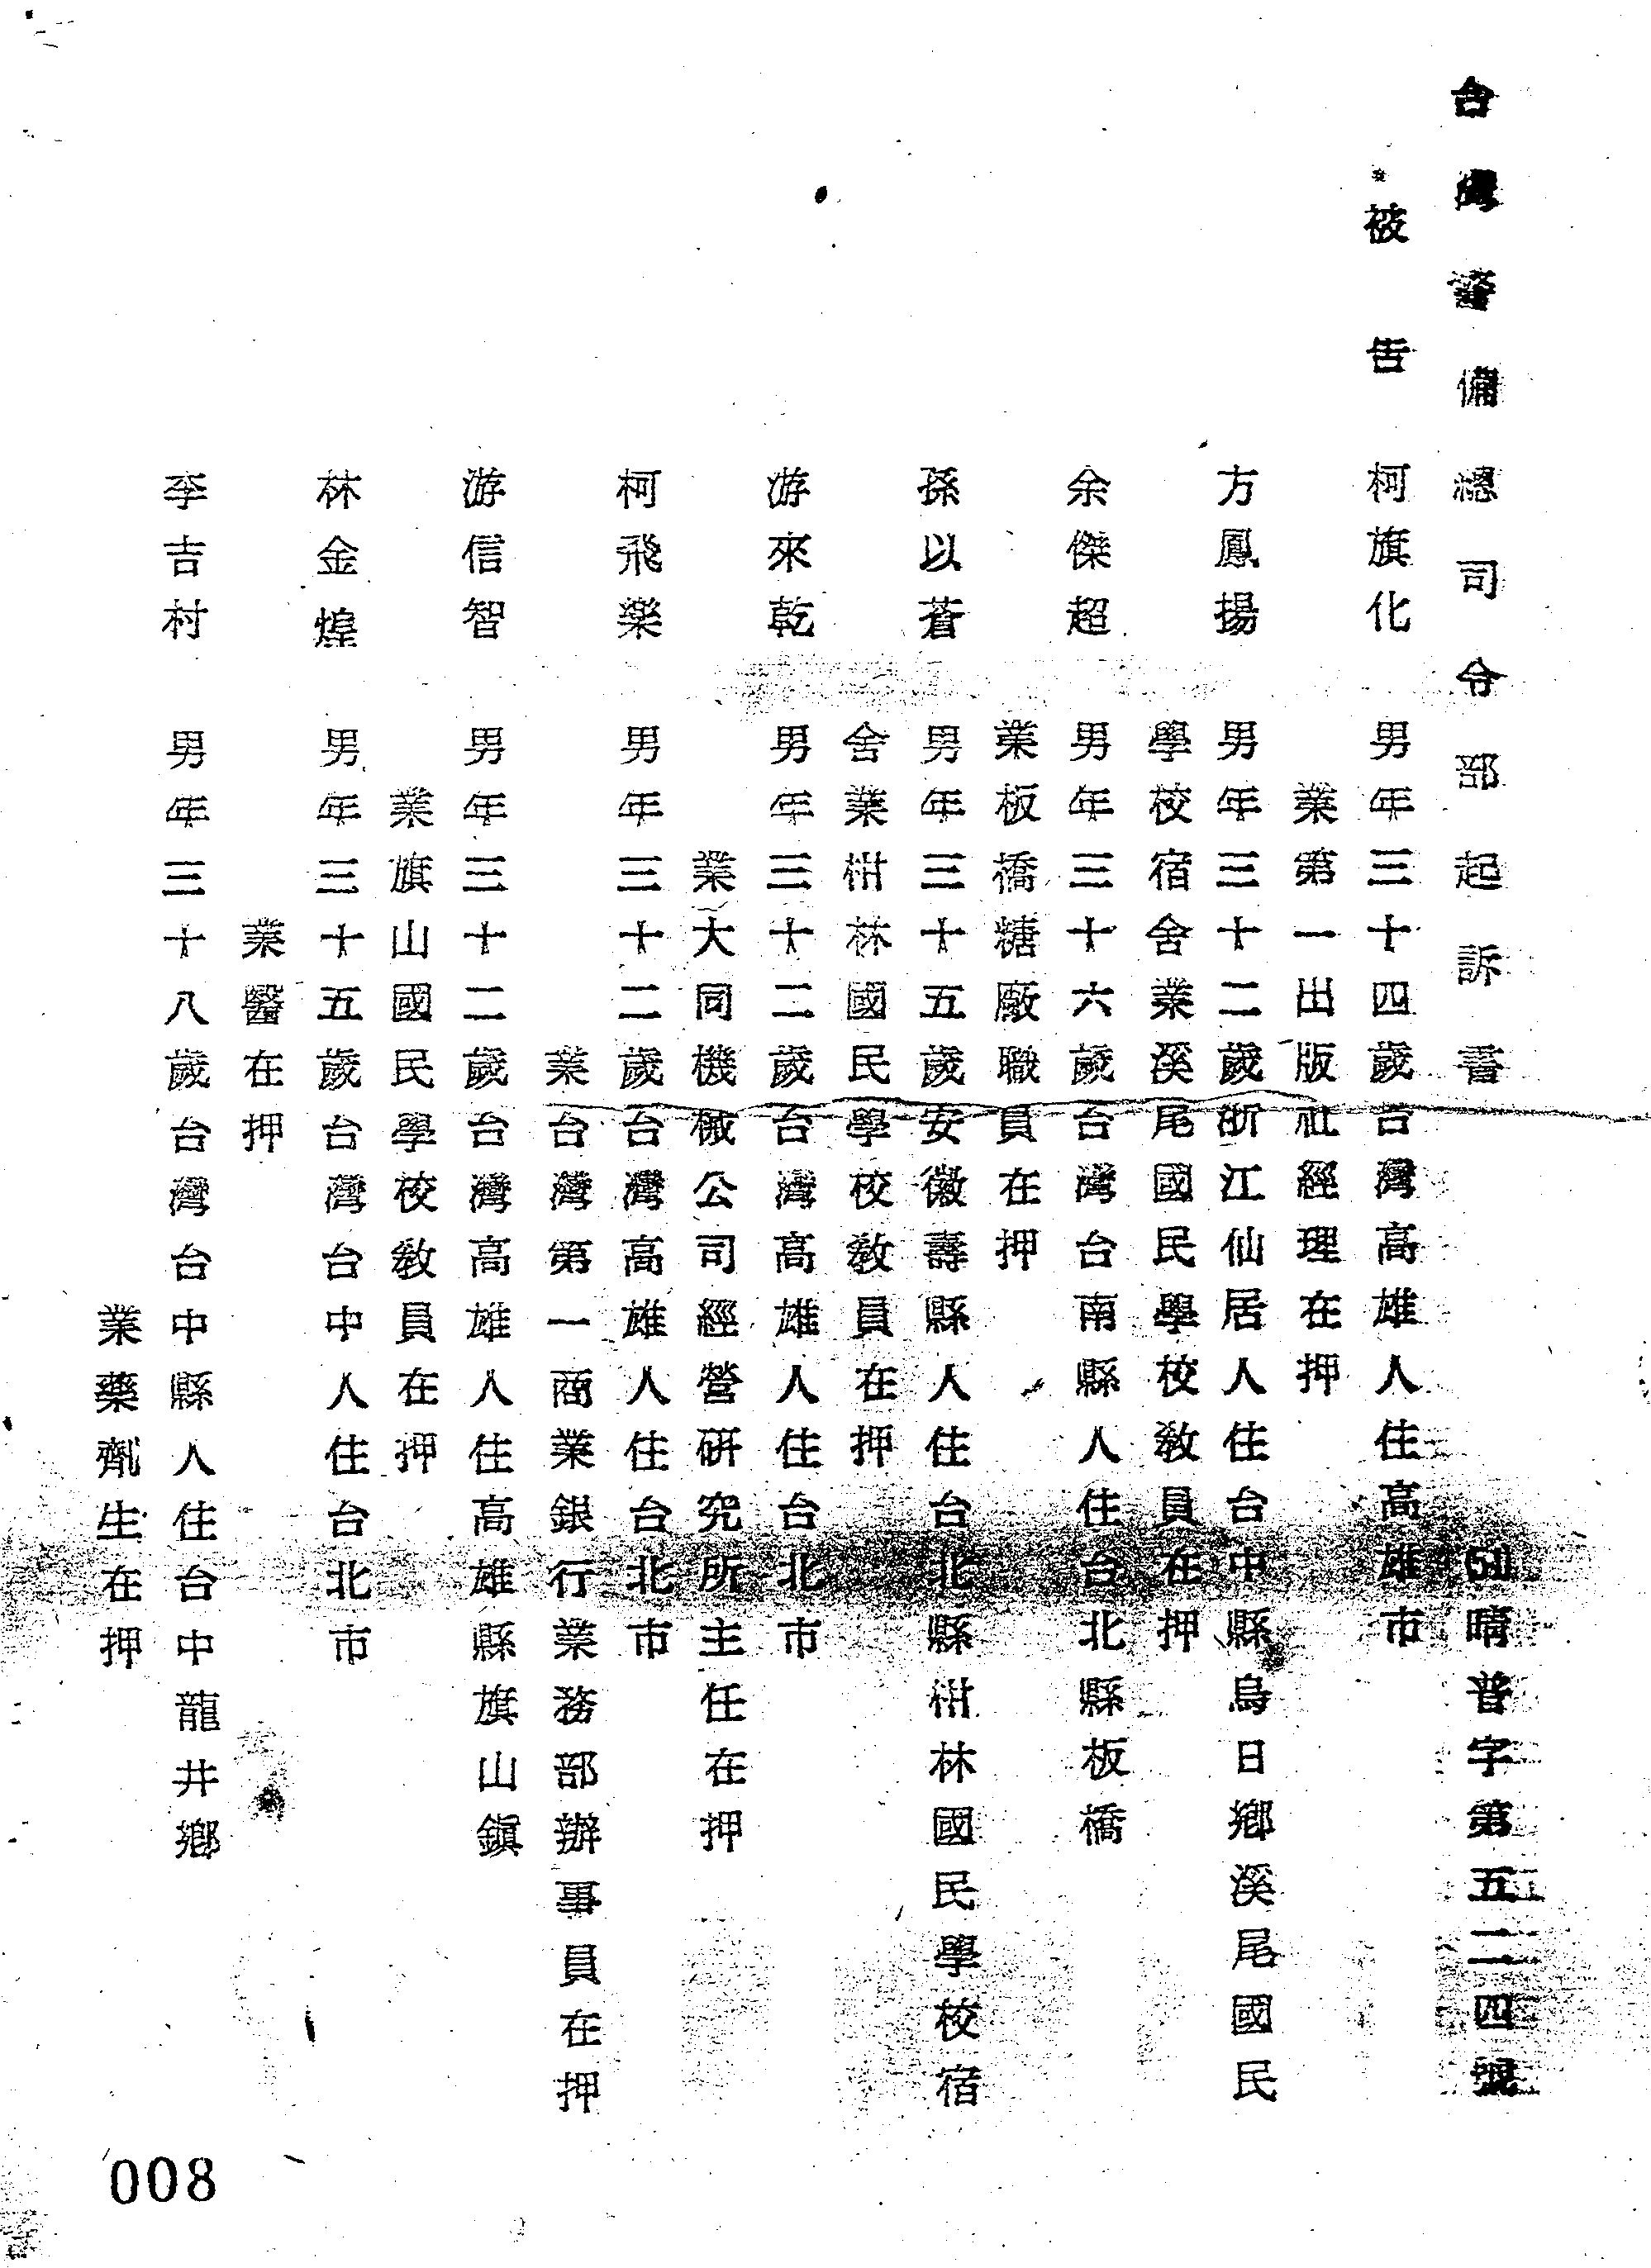 台灣警備總司令部起訴書
(51)晴普字第五二四號
被告
柯旗化 男年三十四歲台灣高雄人住高雄市
業第一出版社經理在押
方鳳揚 男年三十二歲浙江仙居人住台中縣烏日鄉溪尾國民
學校宿舍業溪尾國民學校教員在押
余傑超 男年三十六歲台灣台南縣人住台北縣板橋
業板橋糖廠職員在押
孫以蒼 男年三十五歲安徽壽縣人住台北縣柑林國民學校宿
舍業柑林國民學校教員在押
游來乾 男年三十二歲台灣高雄人住台北市
業大同機械公司經營研究所主任在押
柯飛樂 男年三十二歲台灣高雄人住台北市
業台灣第一商業銀行業務部辦事員在押
游信智 男年三十二歲台灣高雄人住高雄縣旗山鎮
業旗山國民學校教員在押
林金煌 男年三十五歲台灣台中人住台北市
業醫在押
李吉村 男年三十八歲台灣台中縣人住台中龍井鄉
業藥劑生在押
008